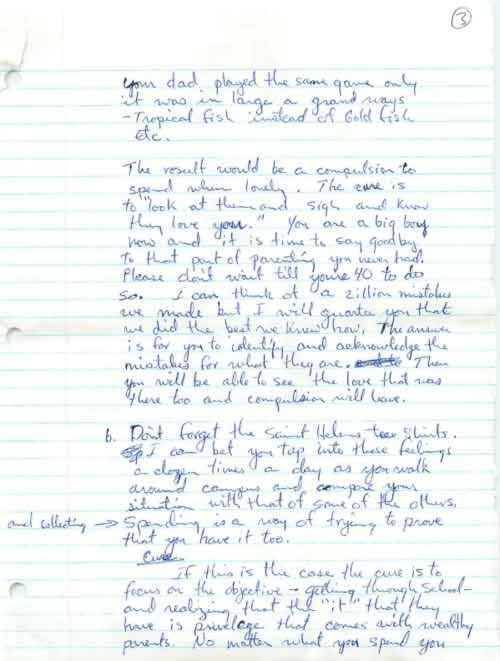 3
your dad played the same game only
it was in large a grand ways
- Tropical fish instead of Gold fish
etc.
The result would be a compulsion to
spend when lonely. The cure is
to "look at them and sigh and know
they love you." You are a big boy
now and it is time to say goodby
to that part of parenting you never had.
Please don't wait till you're 40 to do
so. I can think of a zillion mistakes
we made but I will guarantee you that
we did the best we knew how. The answer
is for you to identify and acknowledge the
mistakes for what they are. Then
you will be able to see the love that was
there too and compulsion will leave.
b. Don't forget the Saint Helens tee shirts.
I can bet you tap into these feelings
a dozen times a day as you walk
around campus and compare your
situation with that of some of the others.
and collecting → Spending is a way of trying to prove
that you have it too.
Cure
If this is the case the cure is to
focus on the objective - getting through School -
and realizing that the "it" that they
have is privilege that comes with wealthy
parents. No matter what you spend you